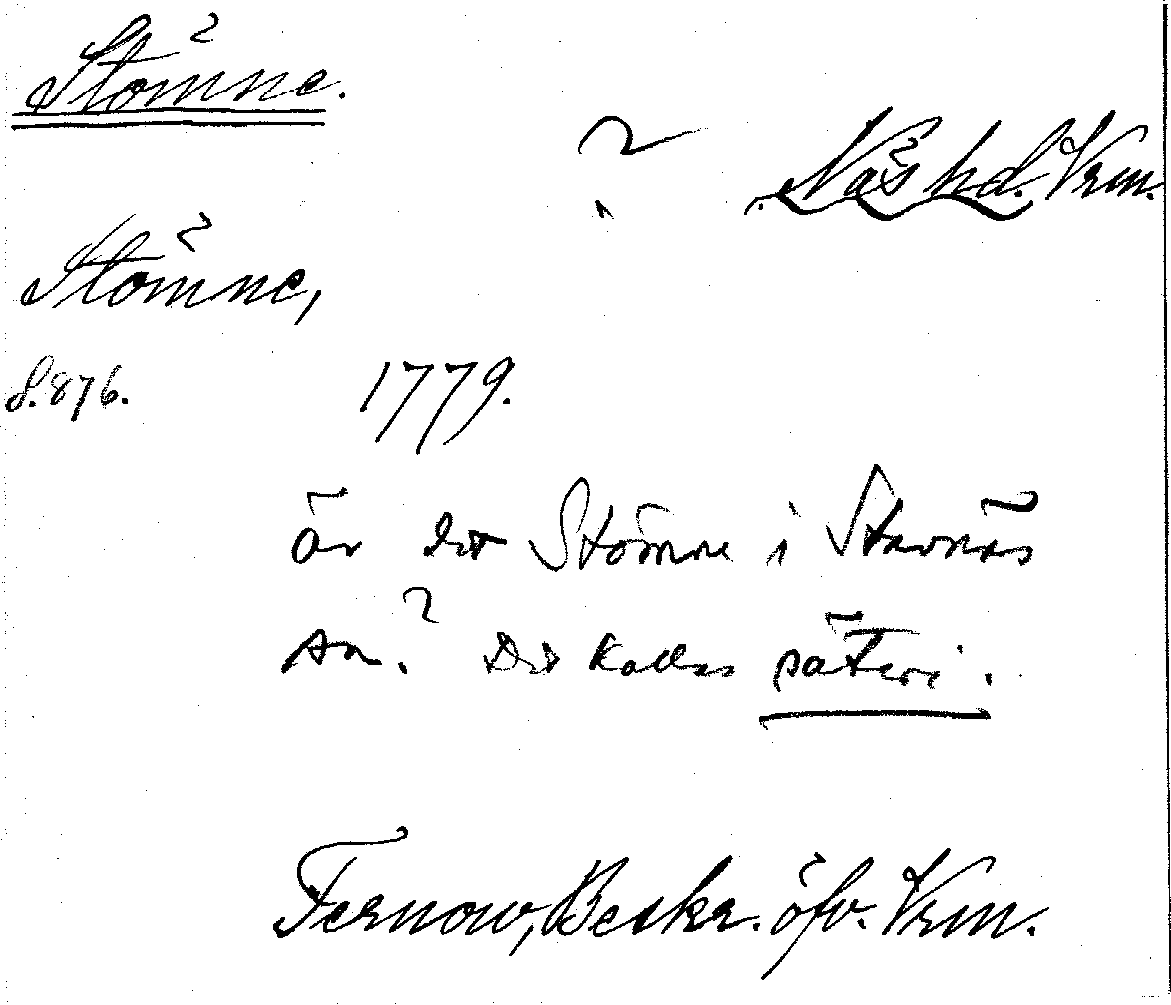 Stömne.
? Näs hd. Vrm.
Stömne,
S. 876. 1779.
Är det Stömne i Stavnäs
sn.? Det kallas säteri.
Fernow, Beskr. öfv. Vrm.